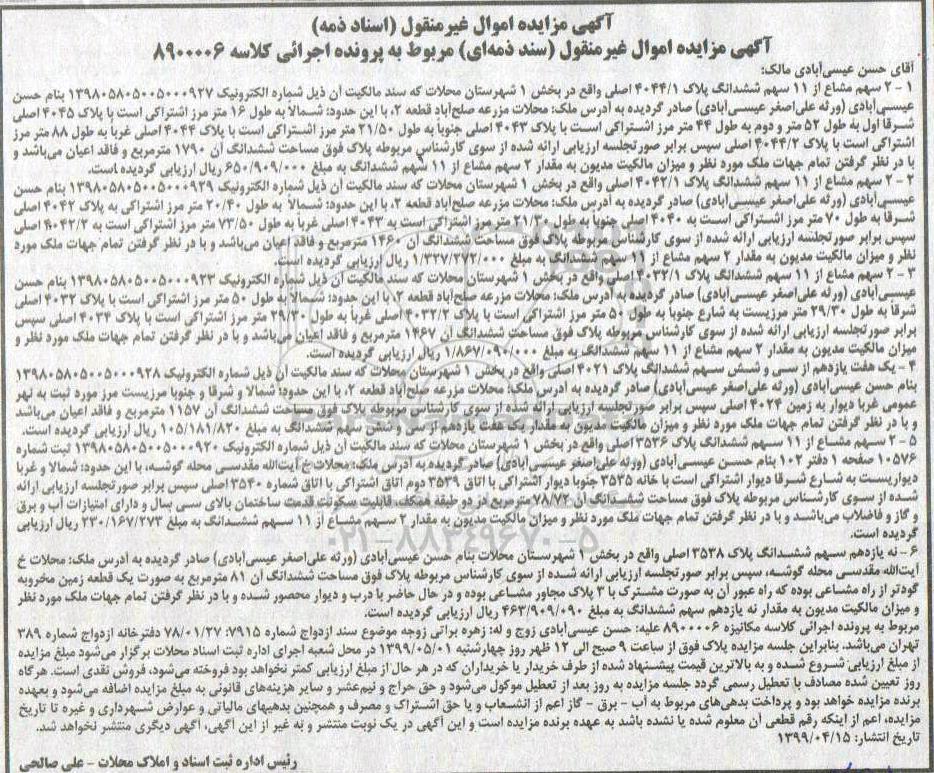 آگهی مزایده اموال غیرمنقول (اسناد ذمه)
آگهی مزایده اموال غیرمنقول (سند ذمه‌ای) مربوط به پرونده اجرائی کلاسه ۸۹۰۰۰۰۶
آقای حسن عیسی‌آبادی مالک:
۱ - ۲ سهم مشاع از ۱۱ سهم ششدانگ پلاک ۴۰۴۴/۱ اصلی واقع در بخش ۱ شهرستان محلات که سند مالکیت آن ذیل شماره الکترونیک ۱۳۹۸۰۵۸۰۵۰۰۵۰۰۰۹۲۷ بنام حسن
عیسی‌آبادی (ورثه علی‌اصغر عیسی‌آبادی) صادر گردیده به آدرس ملک: محلات مزرعه صلح‌آباد قطعه ۲، با این حدود: شمالاً به طول ۱۶ متر مرز اشتراکی است با پلاک ۴۰۴۵ اصلی
شرقاً اول به طول ۵۲ متر و دوم به طول ۴۴ متر مرز اشتراکی است با پلاک ۴۰۴۳ اصلی جنوبا به طول ۲۱/۵۰ متر مرز اشتراکی است با پلاک ۴۰۴۴ اصلی غرباً به طول ۸۸ متر مرز
اشتراکی است با پلاک ۴۰۴۴/۲ اصلی سپس برابر صورتجلسه ارزیابی ارائه شده از سوی کارشناس مربوطه پلاک فوق مساحت ششدانگ آن ۱۷۹۰ مترمربع و فاقد اعیان می‌باشد و
با در نظر گرفتن تمام جهات ملک مورد نظر و میزان مالکیت مدیون به مقدار ۲ سهم مشاع از ۱۱ سهم ششدانگ به مبلغ ۶۵۰/۹۰۹/۰۰۰ ریال ارزیابی گردیده است.
۲ - ۲ سهم مشاع از ۱۱ سهم ششدانگ پلاک ۴۰۴۲/۱ اصلی واقع در بخش ۱ شهرستان محلات که سند مالکیت آن ذیل شماره الکترونیک ۱۳۹۸۰۵۸۰۵۰۰۵۰۰۰۹۲۹ بنام حسن
عیسی‌آبادی (ورثه علی‌اصغر عیسی‌آبادی) صادر گردیده به آدرس ملک: محلات مزرعه صلح‌آباد قطعه ۲، با این حدود: شمالاً به طول ۲۰/۴۰ متر مرز اشتراکی به پلاک ۴۰۴۲ اصلی
شرقاً به طول ۷۰ متر مرز اشتراکی است به ۴۰۴۰ اصلی جنوبا به طول ۲۱/۳۰ متر مرز اشتراکی است به ۴۰۴۳ اصلی غرباً به طول ۷۳/۵۰ متر مرز اشتراکی است به ۴۰۴۲/۲ اصلی
سپس برابر صورتجلسه ارزیابی ارائه شده از سوی کارشناس مربوطه پلاک فوق مساحت ششدانگ آن ۱۴۶۰ مترمربع و فاقد اعیان می‌باشد و با در نظر گرفتن تمام جهات ملک مورد
نظر و میزان مالکیت مدیون به مقدار ۲ سهم مشاع از ۱۱ سهم ششدانگ به مبلغ ۱/۳۲۷/۲۷۲/۰۰۰ ریال ارزیابی گردیده است.
۳ - ۲ سهم مشاع از ۱۱ سهم ششدانگ پلاک ۴۰۳۲/۱ اصلی واقع در بخش ۱ شهرستان محلات که سند مالکیت آن ذیل شماره الکترونیک ۱۳۹۸۰۵۸۰۵۰۰۵۰۰۰۹۲۳ بنام حسن
عیسی‌آبادی (ورثه علی‌اصغر عیسی‌آبادی) صادر گردیده به آدرس ملک: محلات مزرعه صلح‌آباد قطعه ۲، با این حدود: شمالاً به طول ۵۰ متر مرز اشتراکی است با پلاک ۴۰۳۲ اصلی
شرقا به طول ۲۹/۳۰ متر مرزیست به شارع جنوبا به طول ۵۰ متر مرز اشتراکی است با پلاک ۴۰۳۲/۲ اصلی غرباً به طول ۲۹/۳۰ متر مرز اشتراکی است با پلاک ۴۰۳۴ اصلی سپس
برابر صورتجلسه ارزیابی ارائه شده از سوی کارشناس مربوطه پلاک فوق مساحت ششدانگ آن ۱۴۶۷ مترمربع و فاقد اعیان می‌باشد و با در نظر گرفتن تمام جهات ملک مورد نظر و
میزان مالکیت مدیون به مقدار ۲ سهم مشاع از ۱۱ سهم ششدانگ به مبلغ ۱/۸۶۷/۰۹۰/۰۰۰ ریال ارزیابی گردیده است.
۴ - یک هفت یازدهم از سی و شش سهم ششدانگ پلاک ۴۰۲۱ اصلی واقع در بخش ۱ شهرستان محلات که سند مالکیت آن ذیل شماره الکترونیک ۱۳۹۸۰۵۸۰۵۰۰۵۰۰۰۹۲۸
بنام حسن عیسی‌آبادی (ورثه علی‌اصغر عیسی‌آبادی) صادر گردیده به آدرس ملک: محلات مزرعه صلح‌آباد قطعه ۲، با این حدود: شمالا و شرقا و جنوبا مرزیست مرز مورد ثبت به نهر
عمومی غربا دیوار به زمین ۴۰۲۴ اصلی سپس برابر صورتجلسه ارزیابی ارائه شده از سوی کارشناس مربوطه پلاک فوق مساحت ششدانگ آن ۱۱۵۷ مترمربع و فاقد اعیان می‌باشد
و با در نظر گرفتن تمام جهات ملک مورد نظر و میزان مالکیت مدیون به مقدار یک هفت یازدهم از سی و شش سهم ششدانگ به مبلغ ۱۰۵/۱۸۱/۸۲۰ ریال ارزیابی گردیده است.
۵ - ۲ سهم مشاع از ۱۱ سهم ششدانگ پلاک ۳۵۳۶ اصلی واقع در بخش ۱ شهرستان محلات که سند مالکیت آن ذیل شماره الکترونیک ۱۳۹۸۰۵۸۰۵۰۰۵۰۰۰۹۲۰ ثبت شماره
۱۰۵۷۶ صفحه ۱ دفتر ۱۰۲ بنام حسن عیسی‌آبادی (ورثه علی‌اصغر عیسی‌آبادی) صادر گردیده به آدرس ملک: محلات خ آیت‌الله مقدسی محله گوشه، با این حدود: شمالا و غربا
دیواریست به شارع شرقا دیوار اشتراکی است با خانه ۳۵۳۵ جنوبا دیوار اشتراکی با اتاق ۳۵۳۹ دوم اتاق اشتراکی با اتاق شماره ۳۵۴۰ اصلی سپس برابر صورتجلسه ارزیابی ارائه
شده از سوی کارشناس مربوطه پلاک فوق مساحت ششدانگ آن ۷۸/۷۲ مترمربع در دو طبقه همکف، قابلیت سکونت قدمت ساختمان بالای سی سال و دارای امتیازات آب و برق
و گاز و فاضلاب می‌باشد و با در نظر گرفتن تمام جهات ملک مورد نظر و میزان مالکیت مدیون به مقدار ۲ سهم مشاع از ۱۱ سهم ششدانگ به مبلغ ۲۳۰/۱۶۷/۲۷۳ ریال ارزیابی
گردیده است.
۶ - نه یازدهم سهم ششدانگ پلاک ۳۵۳۸ اصلی واقع در بخش ۱ شهرستان محلات بنام حسن عیسی‌آبادی (ورثه علی‌اصغر عیسی‌آبادی) صادر گردیده به آدرس ملک: محلات خ
آیت‌الله مقدسی محله گوشه، سپس برابر صورتجلسه ارزیابی ارائه شده از سوی کارشناس مربوطه پلاک فوق مساحت ششدانگ آن ۸۱ مترمربع به صورت یک قطعه زمین مخروبه
گودتر از راه مشاعی بوده که راه عبور آن به صورت مشترک با ۳ پلاک مجاور مشاعی بوده و در حال حاضر با درب و دیوار محصور شده و با در نظر گرفتن تمام جهات ملک مورد نظر
و میزان مالکیت مدیون به مقدار نه یازدهم سهم ششدانگ به مبلغ ۴۶۳/۹۰۹/۰۹۰ ریال ارزیابی گردیده است.
مربوط به پرونده اجرائی کلاسه مکانیزه ۸۹۰۰۰۰۶ علیه: حسن عیسی‌آبادی زوج و له: زهره براتی زوجه موضوع سند ازدواج شماره ۷۹۱۵: ۷۸/۰۱/۲۷ دفترخانه ازدواج شماره ۳۸۹
تهران می‌باشد. بنابراین جلسه مزایده پلاک فوق از ساعت ۹ صبح الی ۱۲ ظهر روز چهارشنبه ۱۳۹۹/۰۵/۰۱ در محل شعبه اجرای اداره ثبت اسناد محلات برگزار می‌شود مبلغ مزایده
از مبلغ ارزیابی شروع شده و به بالاترین قیمت پیشنهاد شده از طرف خریدار یا خریداران که در هر حال از مبلغ ارزیابی کمتر نخواهد بود فروخته می‌شود، فروش نقدی است. هرگاه
روز تعیین شده مصادف با تعطیل رسمی گردد جلسه مزایده به روز بعد از تعطیل موکول می‌شود و حق حراج و نیم‌عشر و سایر هزینه‌های قانونی به مبلغ مزایده اضافه می‌شود و بعهده
برنده مزایده خواهد بود و پرداخت بدهی‌های مربوط به آب - برق - گاز اعم از انشعاب و یا حق اشتراک و مصرف و همچنین بدهیهای مالیاتی و عوارض شهرداری و غیره تا تاریخ
مزایده، اعم از اینکه رقم قطعی آن معلوم شده یا نشده باشد به عهده برنده مزایده است و این آگهی در یک نوبت منتشر و به غیر از این آگهی، آگهی دیگری منتشر نخواهد شد.
تاریخ انتشار: ۱۳۹۹/۰۴/۱۵
رئیس اداره ثبت اسناد و املاک محلات - علی صالحی
۰۲۱-۸۸۳۴۹۶۷۰-۵